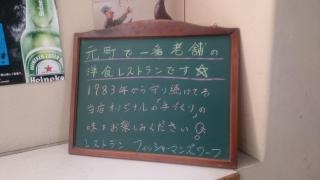 Heineken
元町で一番老舗の
洋食レストランです☆
1983年から守り続けてる
当店オリジナルの「手づくり」の
味をお楽しみください
レストラン フィッシャーマンズワーフ